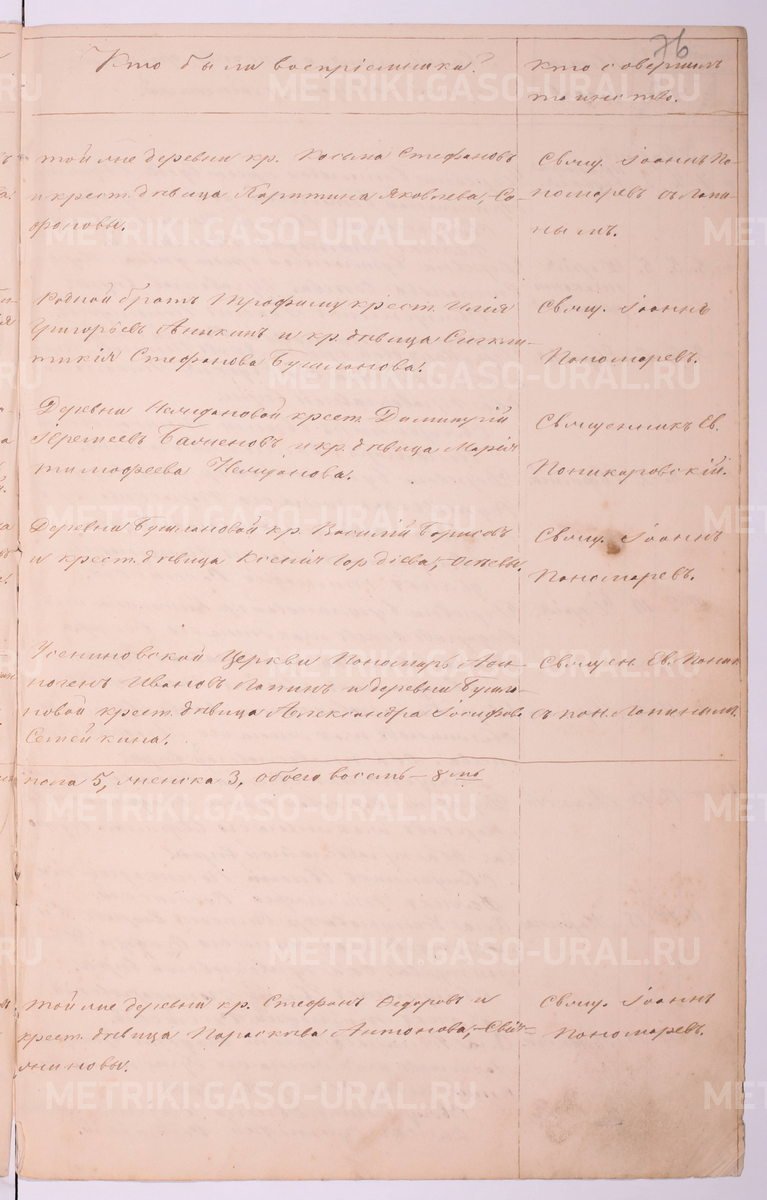 76
Кто были воспріемники?
кто совершилъ
таинство.
той же деревни кр. Косьма Стефановъ
и крест. дѣвица Яковлева, Со-
фоновы.
Свящ. Іоаннъ По-
номаревъ съ Лапи-
нымъ.
Родной братъ Трофиму крест. Илія
Григорьевъ Аникинъ и кр. дѣвица Синкли-
тикія Стефанова Бушланова.
Свящ. Іоаннъ
Пономаревъ.
Деревни крест. Димитрій
и кр. дѣвица Марія
тимофеева
Священникъ Ев.
Деревни Бушлановой кр. Василій Борисовъ
и крест. дѣвица Ксенія Гордіева,
Свящ. Іоаннъ
Пономаревъ.
Усениновской Церкви Пономарь
Ивановъ Лапинъ и деревни Бушла-
новой крест. дѣвица Александра Іосифова
Семейкина.
Священ. Ев.
съ пон. Лапинымъ.
пола 5, женска 3, обоего восемь – 8мь
той же деревни кр. Стефанъ Ѳедоровъ и
крест. дѣвица Параскева Антонова,
Свящ. Іоаннъ
Пономаревъ.
METRIKI.GASO-URAL.RU